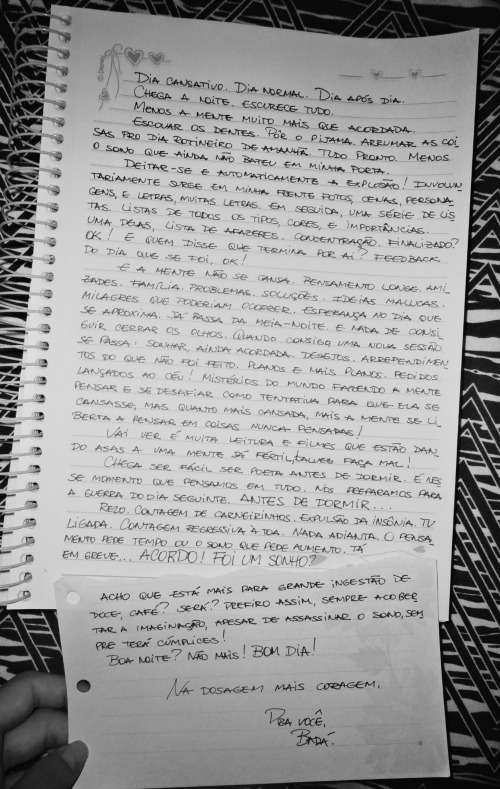 DIA CANSATIVO. DIA NORMAL. DIA APÓS DIA.
CHEGA A NOITE. ESCURECE TUDO.
MENOS A MENTE MUITO MAIS QUE ACORDADA.
ESCOVAR OS DENTES. PÔR O PIJAMA. ARRUMAR AS COI
SAS PRO DIA ROTINEIRO DE AMANHÃ. TUDO PRONTO. MENOS
O SONO QUE AINDA NÃO BATEU EM MINHA PORTA.
DEITAR-SE E AUTOMATICAMENTE A EXPLOSÃO! INVOLUN
TARIAMENTE SURGE EM MINHA FRENTE FOTOS, CENAS, PERSONA
GENS, E LETRAS, MUITAS LETRAS. EM SEGUIDA, UMA SÉRIE DE LIS
TAS. LISTAS DE TODOS OS TIPOS, CORES, E IMPORTÂNCIAS.
UMA DELAS, LISTA DE AFAZERES. CONCENTRAÇÃO. FINALIZADO?
OK! E QUEM DISSE QUE TERMINA POR AÍ? FEEDBACK
DO DIA QUE SE FOI, OK!
E A MENTE NÃO SE CANSA. PENSAMENTO LONGE. AMI
ZADES. FAMÍLIA. PROBLEMAS. SOLUÇÕES. IDEIAS MALUCAS.
MILAGRES QUE PODERIAM OCORRER. ESPERANÇA NO DIA QUE
SE APROXIMA. JÁ PASSA DA MEIA-NOITE. E NADA DE CONSE
GUIR CERRAR OS OLHOS. QUANDO CONSIGO, UMA NOVA SESSÃO
SE PASSA: SONHAR, AINDA ACORDADA. DESEJOS. ARREPENDIMEN
TOS DO QUE NÃO FOI FEITO. PLANOS E MAIS PLANOS. PEDIDOS
LANÇADOS AO CÉU! MISTÉRIOS DO MUNDO FAZENDO A MENTE
PENSAR E SE DESAFIAR COMO TENTATIVA PARA QUE ELA SE
CANSASSE, MAS QUANTO MAIS CANSADA, MAIS A MENTE SE LI
BERTA A PENSAR EM COISAS NUNCA PENSADAS!
VAI VER É MUITA LEITURA E FILMES QUE ESTÃO DAN
DO ASAS A UMA MENTE JÁ FÉRTIL, TALVEZ FAÇA MAL!
CHEGA SER FÁCIL SER POETA ANTES DE DORMIR. É NES
SE MOMENTO QUE PENSAMOS EM TUDO. NOS PREPARAMOS PARA
A GUERRA DO DIA SEGUINTE. ANTES DE DORMIR...
REZO. CONTAGEM DE CARNEIRINHOS. EXPULSÃO DA INSÔNIA. TV
LIGADA. CONTAGEM REGRESSIVA À TOA. NADA ADIANTA. O PENSA
MENTO PEDE TEMPO OU O SONO QUE PEDE AUMENTO. TÁ
EM GREVE... ACORDO! FOI UM SONHO?
ACHO QUE ESTÁ MAIS PARA GRANDE INGESTÃO DE
DOCE, CAFÉ? SERÁ? PREFIRO ASSIM, SEMPRE ACOBER
TAR A IMAGINAÇÃO, APESAR DE ASSASSINAR O SONO, SEM
PRE TERÁ CÚMPLICES!
BOA NOITE? NÃO MAIS! BOM DIA!
NA DOSAGEM MAIS CORAGEM,
PRA VOCÊ,
BADÁ.